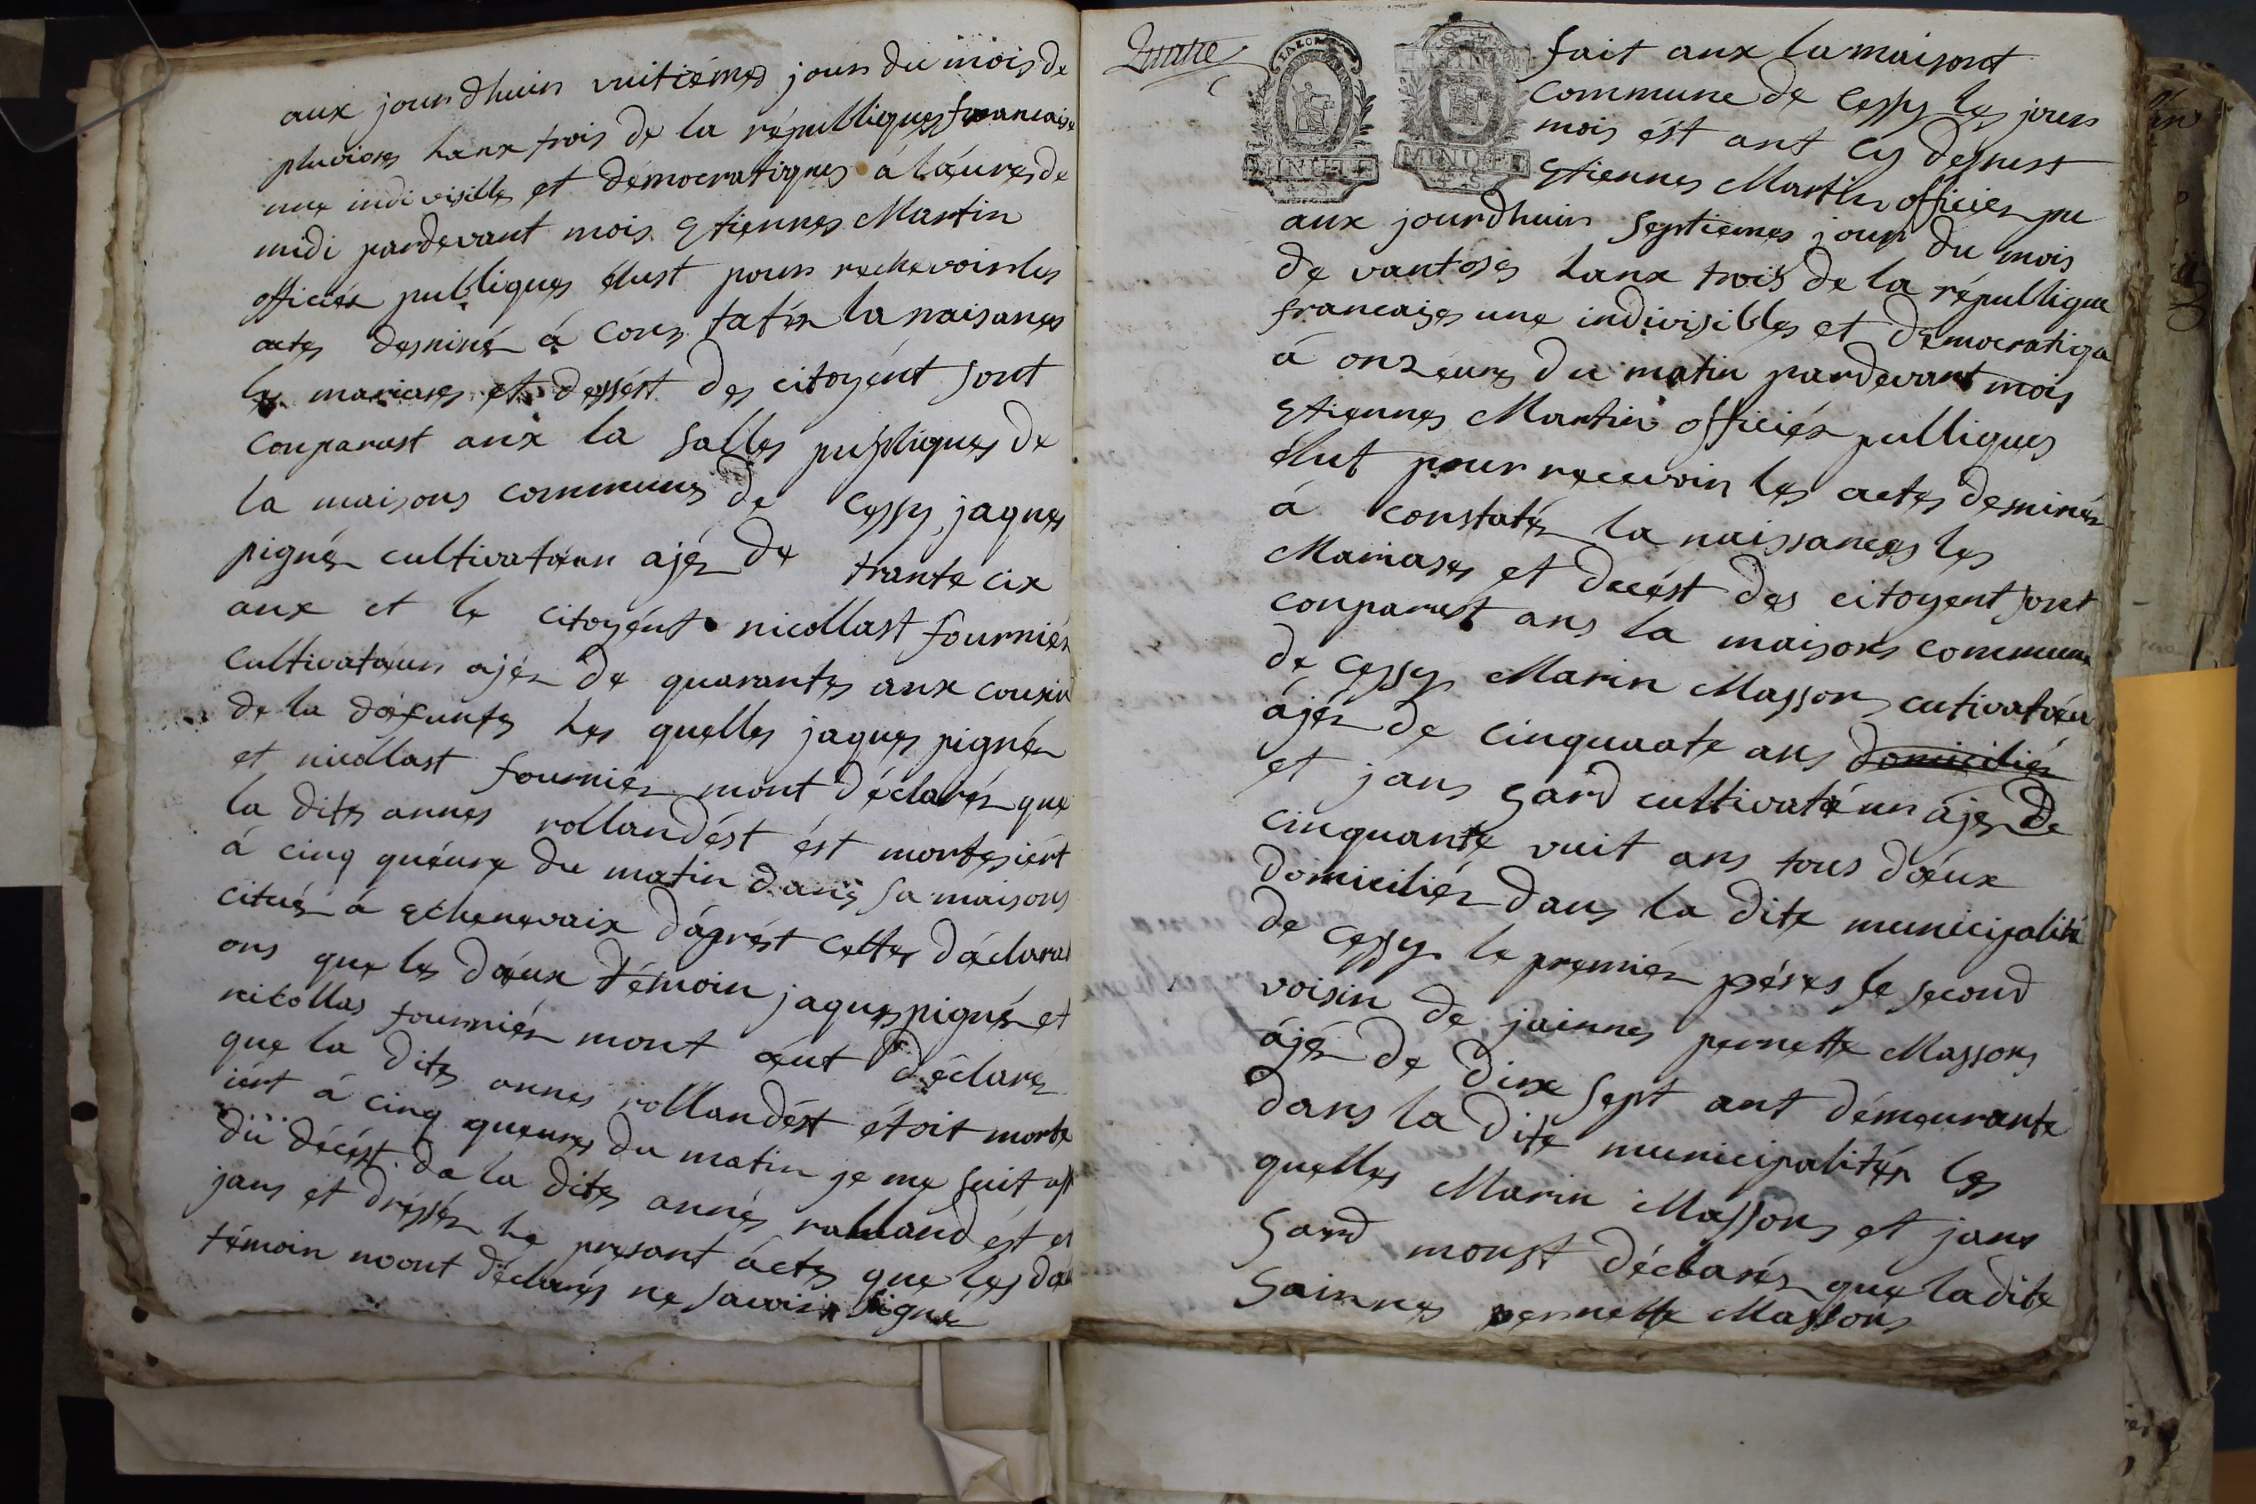 aux jourdhuin vuitiémes jours du mois de
pluvioses lanx trois de la républiques francaise
une indivisibles et démocratiques á láeures de
midi pardevant mois Etiennes Martin
officiér publiques élust pours rechevoir les
actes desniné á cons tatér la naisances
les mariases et dessést des citoyént sont
conparust aux la salles publiques de
la maisons communes de Cessy jaques
pignér cultivatæur ajér de trante cix
anx et le citoyént nicollast fourniér
cultivatæur ajér de quarantes anx cousin
de la défuntes les quelles jaques pignér
et nicollast fourniér mont déclarér que
la dites annes rollandést ést mortes iért
á cinq quéure du matin dans sa maisons
cituér á Echenevaix dágrést cettes déclarati
ons que les dæux témoin jaques pignér et
nicollas fourniér mont æut déclarér
que la dites annes rollandést étoit morte
iért á cinq queures du matin je me suit ass
du décést de la dites annés rolland ést et
jans et dréssér le presant áctes que les dæu
témoin noont déclarés ne savoir signér
Quatre
MINUTE
MINUTE
fait aux la maisont
commune de Cessy les jours
mois ést ant cy desust
Etiennes Martin officier pu
aux jourdhuin septiemes jour du mois
de vantoses lanx trois de la républiqu
francaises une indivisibles et démocratiqu
á onzéures du matin pardevant mois
Etiennes Martin officiér publiques
élut pour recevoir les actes desninér
á constatér la naissances les
Mariases et decést des citoyent sont
conparust ans la maisons commune
de Cessy Marin Massons cutivatæu
ájér de cinquaate ans domiciliér
et jans Gard cultivatéur ájer de
cinquante vuit ans tous dæux
domiciliér dans la dite municipalité
de Cessy le premiér péres le second
voisin de jainnes pernette Massons
ájér de dixe sept ant démeurante
dans la dite municipalitér les
quelles Marin Massons et jans
Gard monst déclarér que ladite
Gainnes pernette Massons